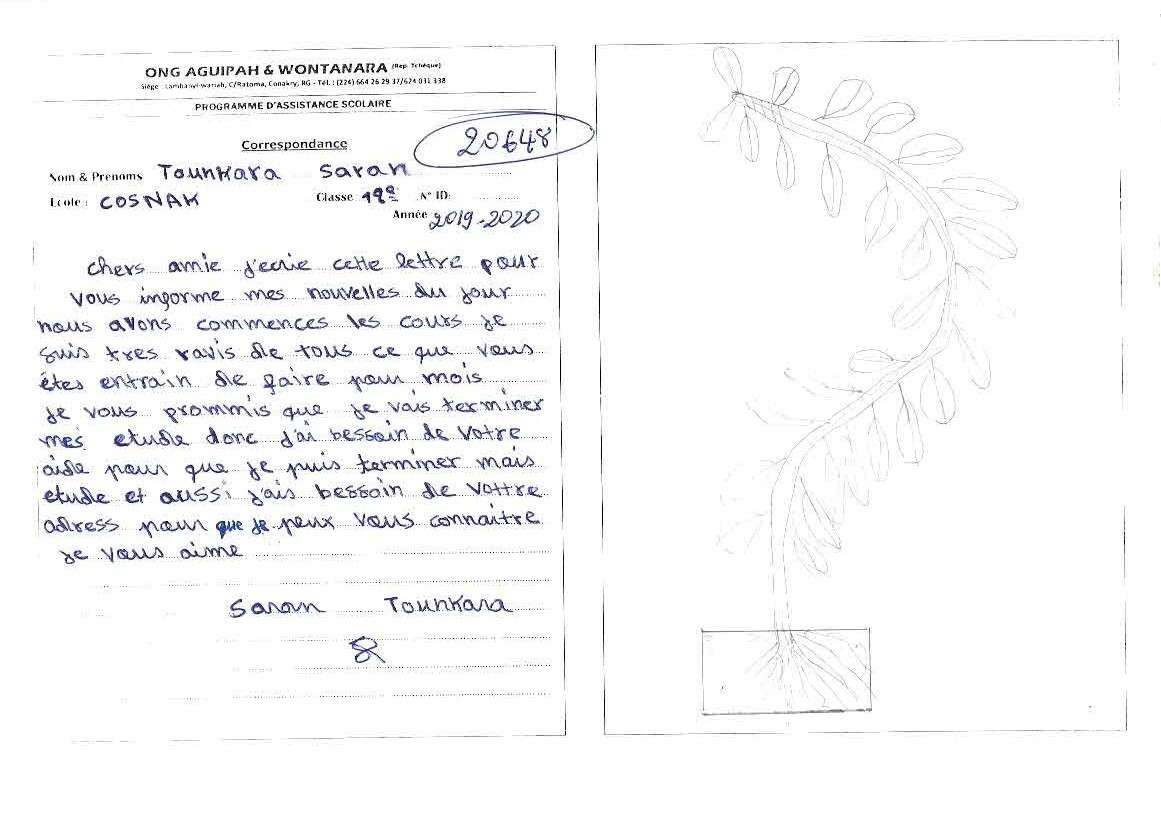 ONG AGUIPAH & WONTANARA (Rep. Tchèque)
Siège : Lambanyi-wariah, C/Ratoma, Conakry, RG - Tél. : (224) 664 26 29 37/624 031 338
PROGRAMME D'ASSISTANCE SCOLAIRE
Correspondance
20648
Nom & Prenoms Tounkara Saran
Ecole : COSNAK Classe N° ID:
Année 2019-2020
chers amie j'ecrie cette lettre pour
vous informe mes nouvelles du jour
nous avons commences les cours je
suis tres ravis de tous ce que vous
êtes entrain de faire pour mois
je vous prommis que je vais terminer
mes etude donc j'ai bessoin de votre
aide pour que je puis terminer mais
etude et aussi j'ais bessoin de vottre
adress pour que je peux vous connaitre
je vous aime
Saran Tounkara